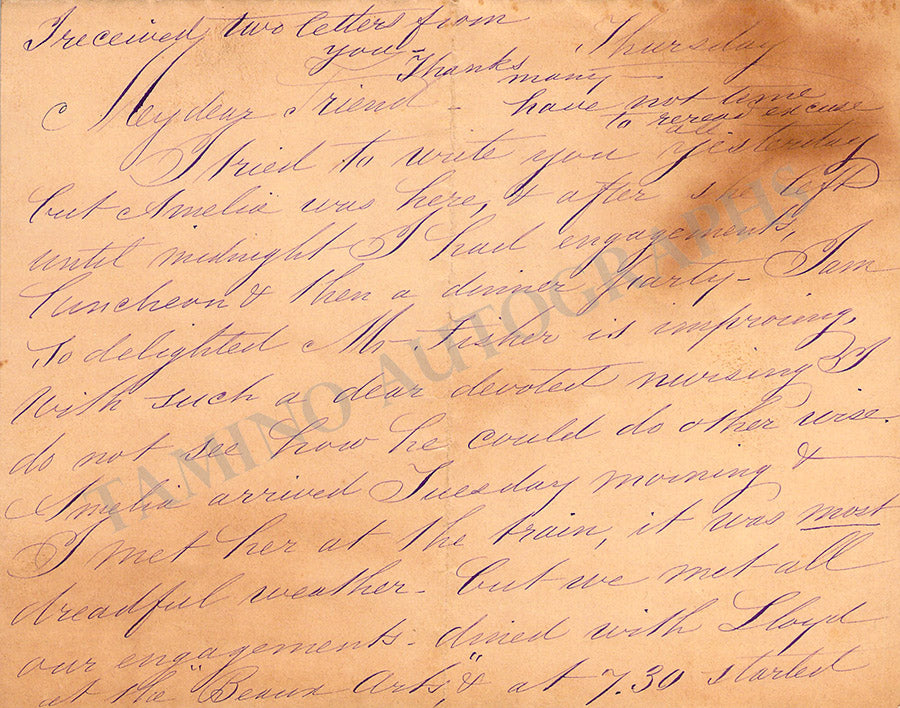 I received two letters from
you - Thursday
Thanks many -
My dear Friend - have not time
to reread excuse
all
I tried to write you yesterday
but Amelia was here, & after she left
until midnight I had engagements,
Luncheon & then a dinner party - I am
so delighted Mr. Fisher is improving,
with such a dear devoted nursing I
do not see how he could do other wise.
Amelia arrived Tuesday morning &
I met her at the train, it was most
dreadful weather - but we met all
our engagements - dined with Lloyd
at the "Beaux Arts," & at 7.30 started
TAMINO AUTOGRAPHS